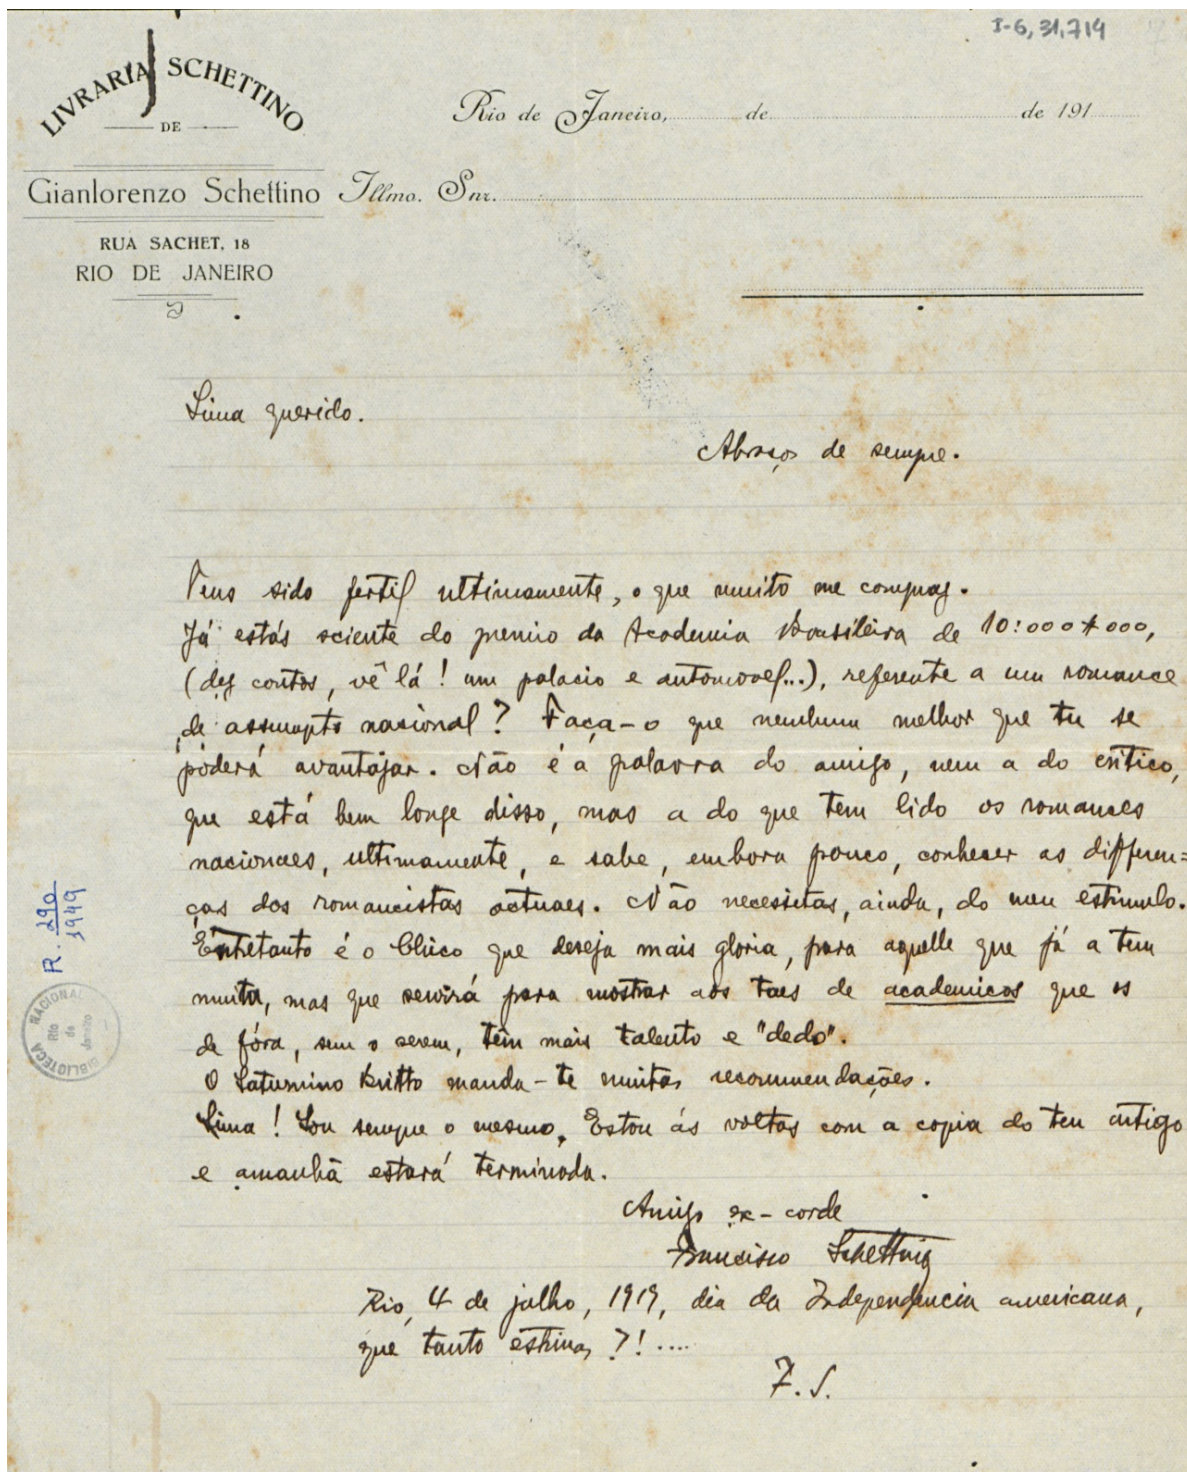 I-6,31,714
LIVRARIA SCHETTINO
DE
Gianlorenzo Schettino
RUA SACHET, 18
RIO DE JANEIRO
Rio de Janeiro, de de 191
Illmo. Snr.
Lima querido.
Abraços de sempre.
Tens sido fertil ultimamente, o que muito me compraz.
Já estás sciente do premio da Academia Brasileira de 10:000$000,
(dez contos, vê lá! um palacio e automovel...), referente a um romance
de assumpto nacional? Faça-o que nenhum melhor que tu se
poderá avantajar. Não é a palavra do amigo, nem a do critico,
que está bem longe disso, mas a do que tem lido os romances
nacionaes, ultimamente, e sabe, embora pouco, conhecer as differen=
ças dos romancistas actuaes. Não necessitas, ainda, do meu estimulo.
Entretanto é o Chico que deseja mais gloria, para aquelle que já a tem
muita, mas que servirá para mostrar aos taes de academicos que os
de fóra, sem o serem, têm mais talento e "dedo".
O Saturnino Britto manda-te muitas recommendações.
Lima! Sou sempre o mesmo. Estou ás voltas com a copia do teu artigo
e amanhã estará terminada.
Amigo ex-corde
Francisco Schettino
Rio, 4 de julho, 1919, dia da Independencia americana,
que tanto estimas?!....
F. S.
R. 290
1949
BIBLIOTECA NACIONAL
Rio
de
Janeiro